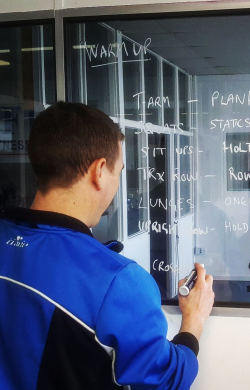 WARM UP
T-ARM - PLAN
STATICS
SIT UPS - HOL
TRX ROW - ROW
LUNGES - ONE
UPRIGHT ROW - HOLD
CRO